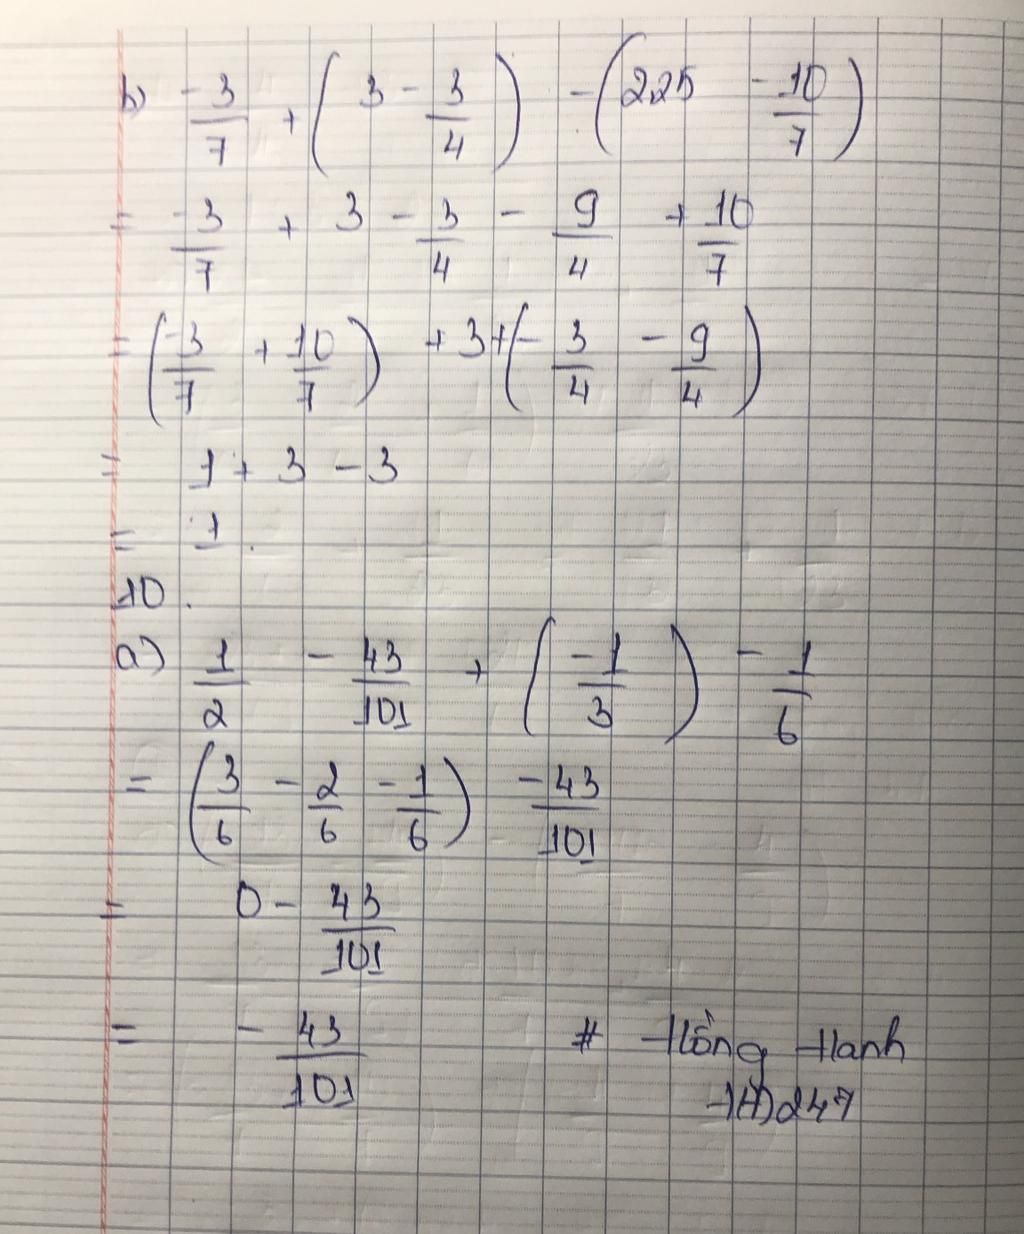 b) -3/7 + (3 - 3/4) - (2,25 - 10/7)
= -3/7 + 3 - 3/4 - 9/4 + 10/7
= (-3/7 + 10/7) + 3 + (- 3/4 - 9/4)
= 1 + 3 - 3
= 1.
10.
a) 1/2 - 43/101 + (-1/3) - 1/6
= (3/6 - 2/6 - 1/6) - 43/101
= 0 - 43/101
= - 43/101 # Hồng Hanh
247